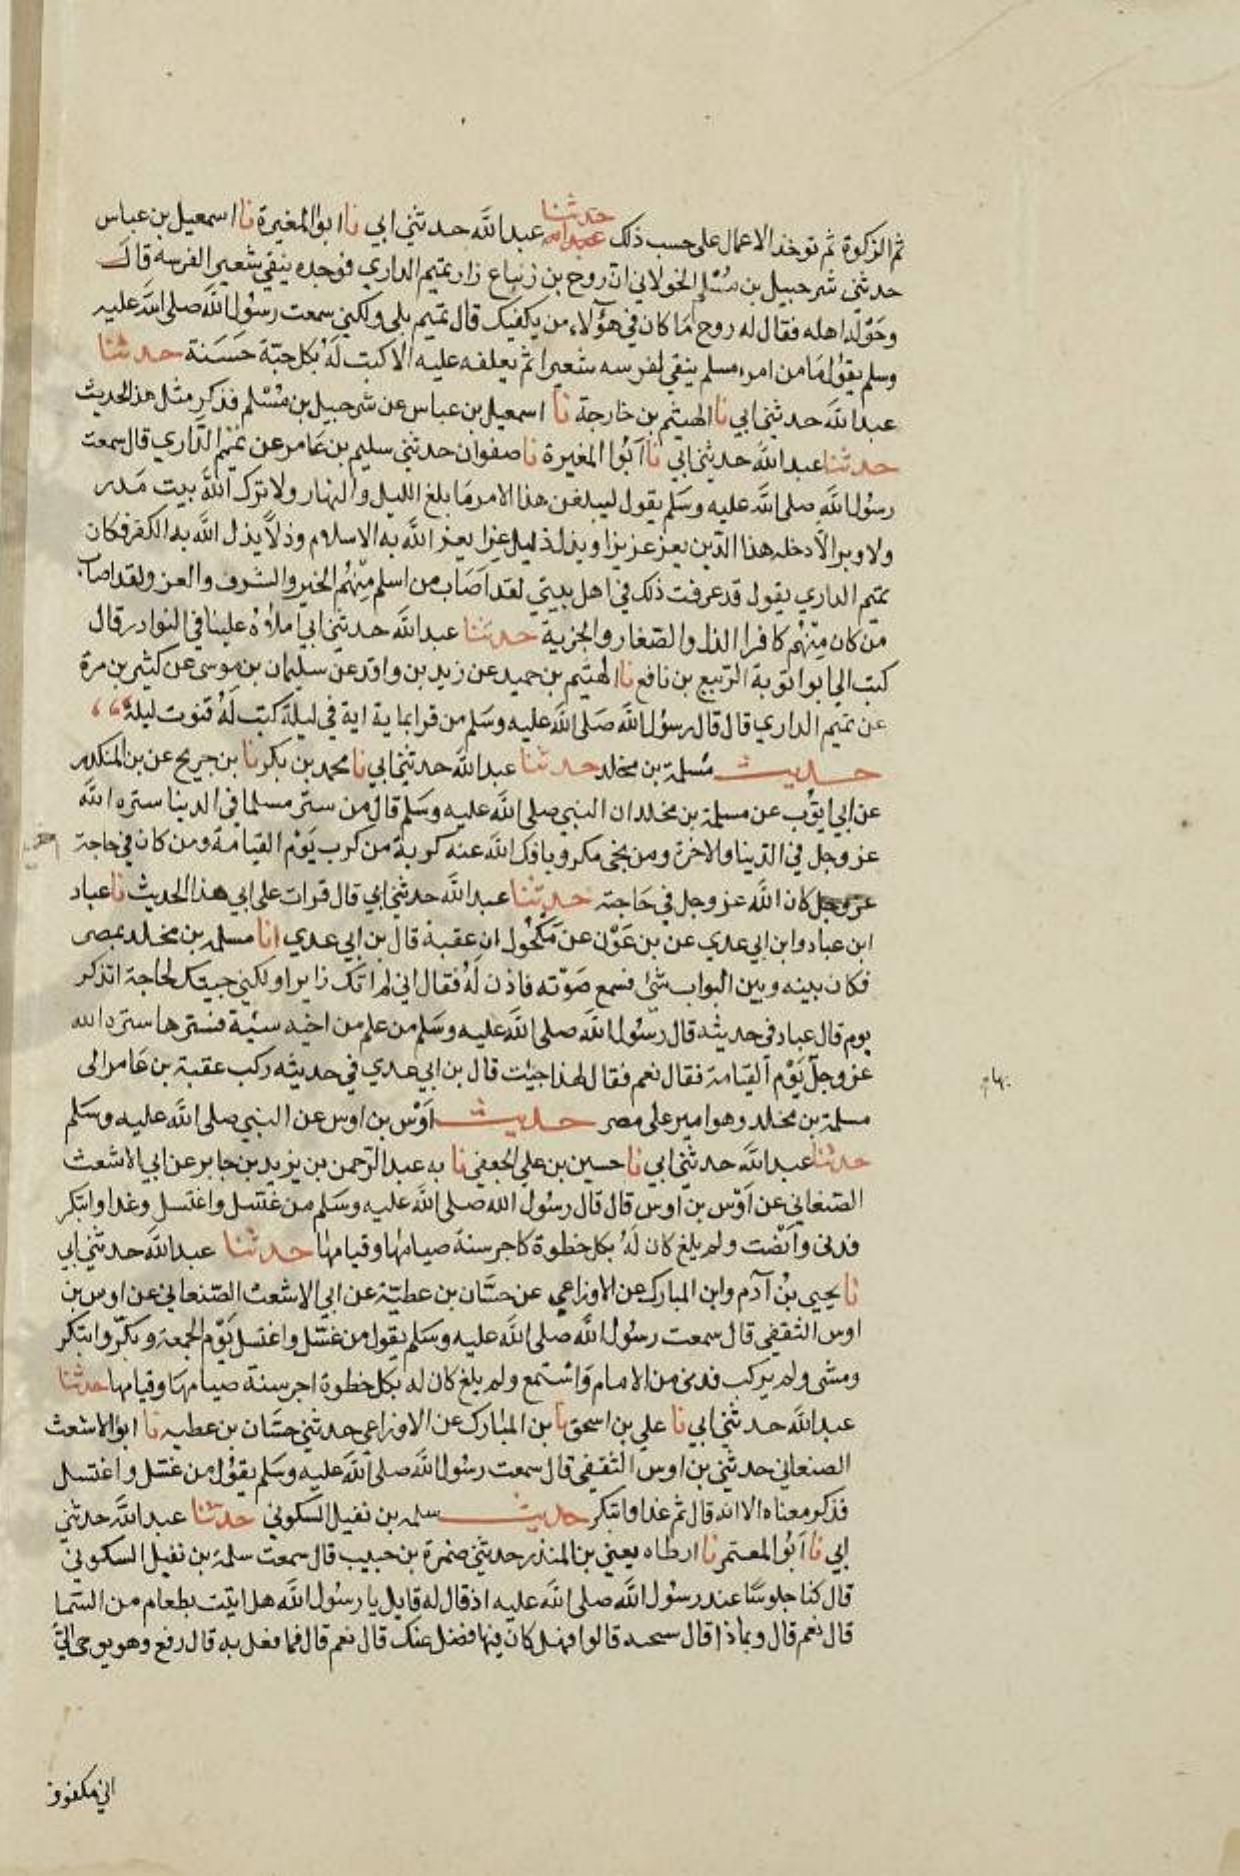 ثم الزكوة ثم توخذ الاعمال على حسب ذلك حدثنا عبدالله عبدالله حدثني ابي نا ابو المغيرة نا اسمعيل بن عباس
حدثنى شرحبيل بن مسلم الخولاني ان روح بن زنباع زار تميم الداري فوجده ينقي شعير الفرسه قال
وحوله اهله فقال له روح اما كان في هؤلاء من يكفيك قال تميم بلى ولكني سمعت رسول الله صلى الله عليه
وسلم يقول ما من امرء مسلم ينقي لفرسه شعيرا ثم يعلفه عليه الا كبت له بكل حبة حسنة حدثنا
عبدالله حدثني ابي نا الهيثم بن خارجة نا اسمعيل بن عباس عن شرحبيل بن مسلم فذكر مثل هذ الحديث
حدثنا عبدالله حدثني ابي نا ابو المغيرة نا صفوان حدثني سليم بن عامر عن تميم الداري قال سمعت
رسول الله صلى الله عليه وسلم يقول ليبلغن هذا الامر ما بلغ الليل والنهار ولا يترك الله بيت مدر
ولا وبر الا دخله هذا الدين بعز عزيزا وبذل ذليل عزا يعز الله به الاسلام وذلا يذل الله به الكفر فكان
تميم الداري يقول قد عرفت ذلك في اهل بيتي لقد اصاب من اسلم منهم الخير والشرف والعز ولقد اصاب
من كان منهم كافرا الذل والصغار والجزية حدثنا عبدالله حدثني ابي املاه علينا في النوادر قال
كتب الي ابو اتوبة الربيع بن نافع نا الهيثم بن حميد عن زيد بن واقد عن سليمان بن موسى عن كثير بن مرة
عن تميم الداري قال قال رسول الله صلى الله عليه وسلم من قرا بماية اية في ليلة كتب له قنوت ليلة
حديث مسلمة بن مخلد حدثنا عبدالله حدثني ابي نا محمد بن بكر نا بن جريج عن بن المنكدر
عن ابي ايوب عن مسلمة بن مخلد ان النبي صلى الله عليه وسلم قال من ستر مسلما في الدينا ستره الله
عز وجل في الدينا والاخرة ومن نجى مكروبا فك الله عنه كربة من كرب يوم القيامة ومن كان في حاجة
عز وجل كان الله عز وجل في حاجته حدثنا عبدالله حدثني ابي قال قرات على ابي هذا الحديث نا عباد
ابن عباد وابن ابي عدي عن بن عون عن مكحول ان عقبة قال بن ابي عدي انا مسلمه بن مخلد بمصر
فكان بينه وبين البواب شئ فسمع صوته فاذن له فقال اني لم اتك زايرا ولكني جيتك لحاجة اتذكر
يوم قال عباد في حديثه قال رسول الله صلى الله عليه وسلم من علم من اخيه سيئة فسترها ستره الله
عز وجل يوم القيامة فقال نعم فقال لهذا جيت قال بن ابي عدي في حديثه ركب عقبة بن عامر الى
مسلمة بن مخلد وهو امير على مصر حديث اوس بن اوس عن النبي صلى الله عليه وسلم
حدثنا عبدالله حدثني ابي نا حسين بن علي الجعفي نا به عبد الرحمن بن يزيد بن جابر عن ابي الاشعث
الصنعاني عن اوس بن اوس قال قال رسول الله صلى الله عليه وسلم من غسل واغتسل وغدا وابتكر
فدنى وانضت ولم يلغ كان له بكل خطوة كاجر سنة صيامها وقيامها حدثنا عبدالله حدثني ابي
نا يحيى بن آدم وابن المبارك عن الاوزاعي عن حسان بن عطية عن ابي الاشعث الصنعاني عن اوس بن
اوس الثقفي قال سمعت رسول الله صلى الله عليه وسلم يقول من غسل واغتسل يوم الجمعة وبكر وابتكر
ومشى ولم يركب فدنى من الامام واستمع ولم يلغ كان له بكل خطوة اجر سنة صيامها وقيامها حدثنا
عبدالله حدثني ابي نا علي بن اسحق نا بن المبارك عن الاوزاعي حدثني حسان بن عطيه نا ابو الاشعث
الصنعاني حدثني بن اوس الثقفي قال سمعت رسول الله صلى الله عليه وسلم يقول من غسل واغتسل
فذكر معناه الا انه قال ثم غدا وابتكر حديث سلمه بن نفيل السكوني حدثنا عبدالله حدثني
ابي نا ابو المعتمر نا ارطاه يعني بن المنذر حدثني ضمرة بن حبيب قال سمعت سلمة بن نفيل السكوني
قال كنا جلوسا عند رسول الله صلى الله عليه اذ قال له قايل يا رسول الله هل اتيت بطعام من السما
قال نعم قال وبماذا قال سحنه قالوا فهل كان فيها فضل عنك قال نعم قال فما فعل به قال رفع وهو يوحى الي
اني مكفوف